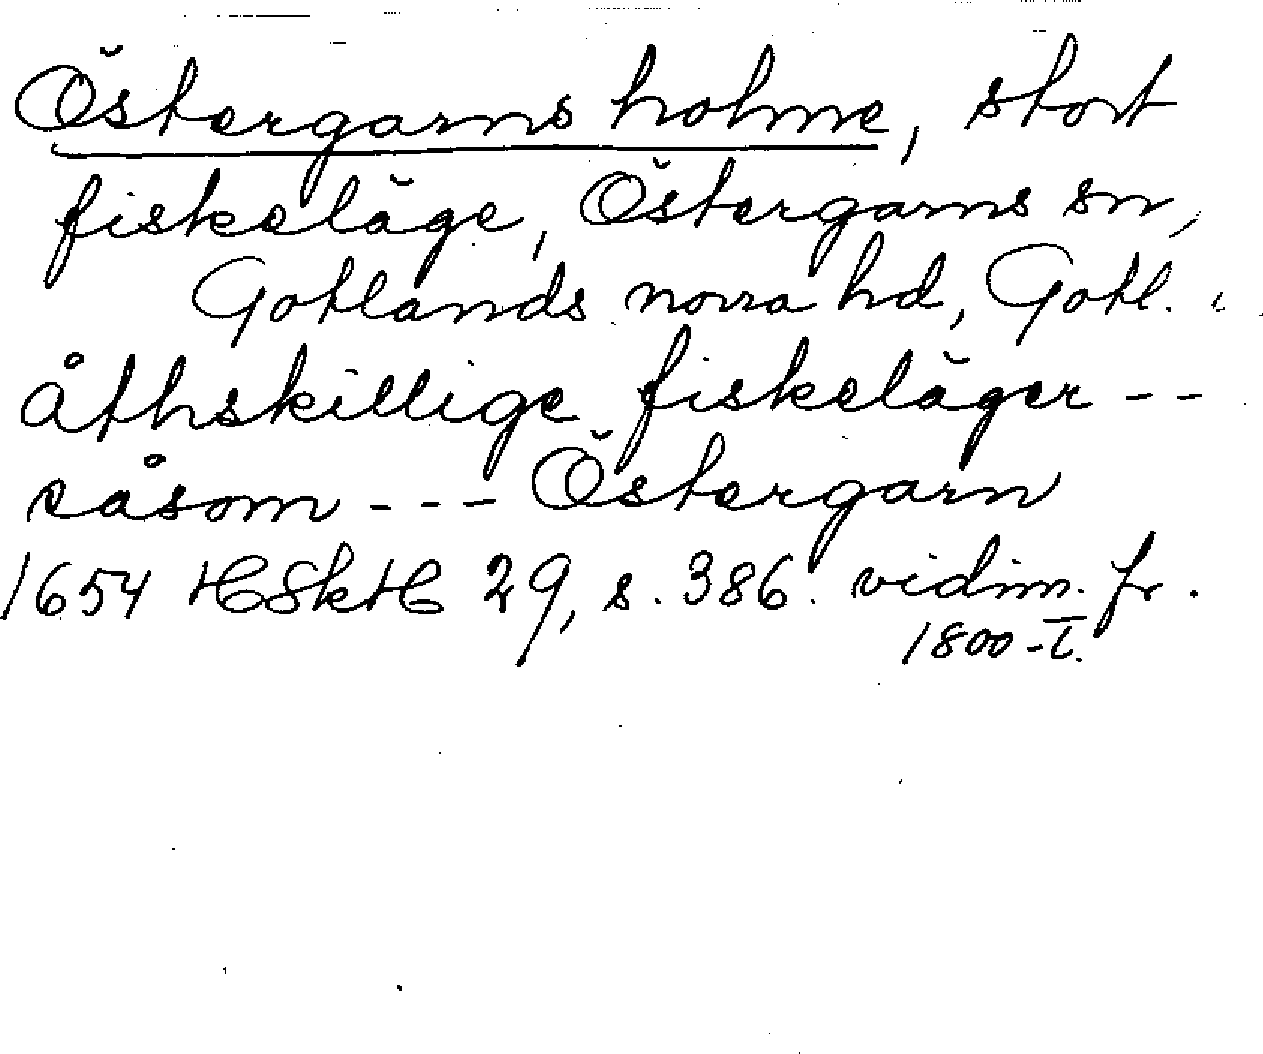 Östergarns holme, stort
fiskeläge, Östergarns sn,
Gotlands norra hd, Gotl.
åthskillige fiskeläger - -
såsom - - - Östergarn
1654 HSkH 29, s. 386. vidim. fr.
1800-t.